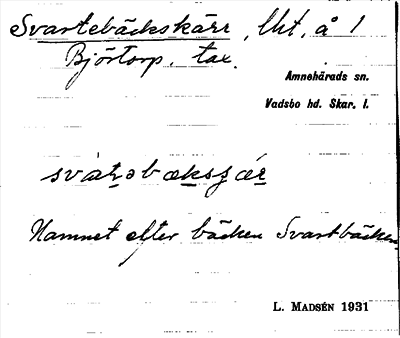 Svartebäckskärr, lht, å 1
Björtorp. tax.
Amnehärads sn.
Vadsbo hd. Skar. l.
svát̠əbæks̠ʃær̠
Namnet efter bäcken Svartbäcken
L. MADSÉN 1931